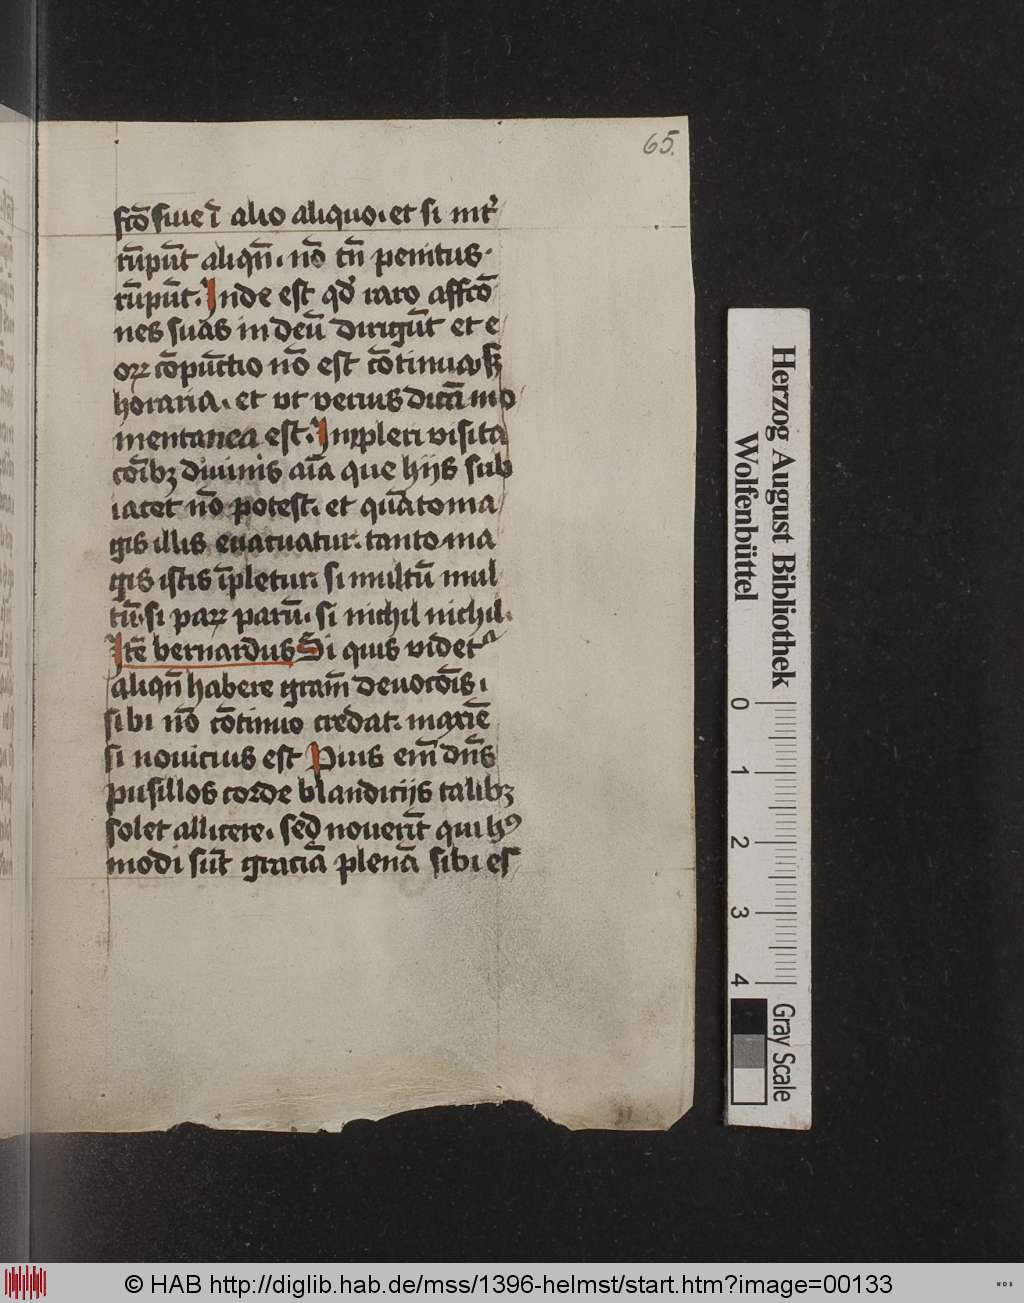 65.
scō siue ī alio aliquo. et si int̄
rūpūt aliqn̄. nō tn̄ penitus.
rūpūt. Inde est qd̓ raro affcō
nes suas in deū dirigūt et e
oꝝ cōpūctio nō est cōtinua, ſꝫ
horaria. et vt verius dicā mo
mentanea est. Impleri visita
cōibꝫ diuinis aīa que hijs sub
iacet nō potest. et quāto ma
gis illis euacuatur. tanto ma
gis istis īpletur. si multū mul
tū. si paꝝ parū. si nichil nichil.
Itē bernardus Si quis videt᷑
aliqn̄ habere grām deuocōis.
sibi nō cōtinuo credat. maxīe
si nouicius est Pius em̄ dn̄s
pusillos corde blandicijs talibꝫ
solet allicere. sed nouerīt qui hꝰ
modi sūt graciā plenā sibi es
Herzog August Bibliothek
Wolfenbüttel
0 1 2 3 4
Gray Scale
© HAB http://diglib.hab.de/mss/1396-helmst/start.htm?image=00133